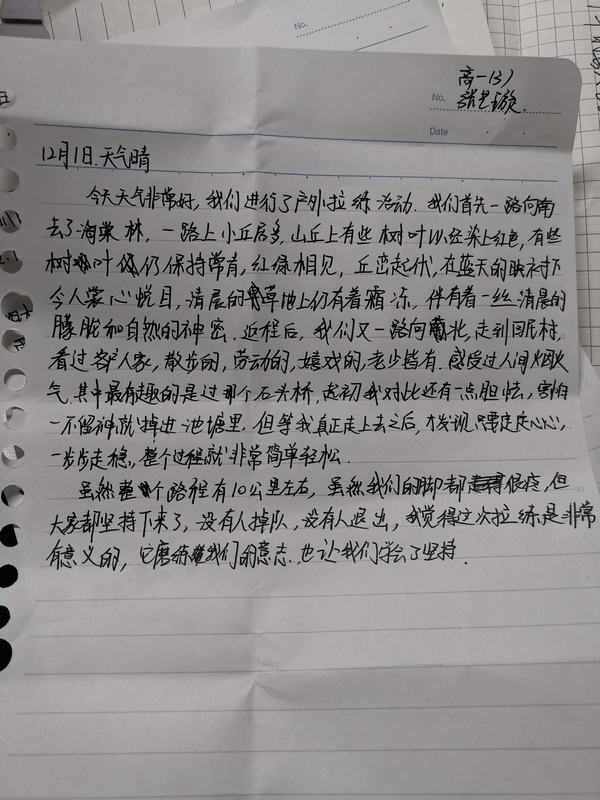 No.
高一(3)
No. 张艺璇
Date
12月1日.天气晴
今天天气非常好，我们进行了户外拉练活动.我们首先一路向南
去了海棠林，一路上小丘居多，山丘上有些树叶以经染上红色，有些
树叶仍保持常青，红绿相见，丘峦起伏，在蓝天的映衬下
令人赏心悦目，清晨的草地上仍有着霜冻，伴有着一丝清晨的
朦胧和自然的神密.返程后，我们又一路向北，走到回民村，
看过客户人家，散步的，劳动的，嬉戏的，老少皆有.感受过人间烟火
气.其中最有趣的是过那个石头桥，起初我对此还有一点胆怯，害怕
一不留神就掉进池塘里.但等我真正走上去之后，才发现只要定定心心，
一步步走稳，整个过程就非常简单轻松.
虽然整个路程有10公里左右，虽然我们的脚都很疼，但
大家都坚持下来了，没有人掉队，没有人退出，我觉得这次拉练是非常
有意义的，它磨练我们的意志.也让我们学会了坚持.